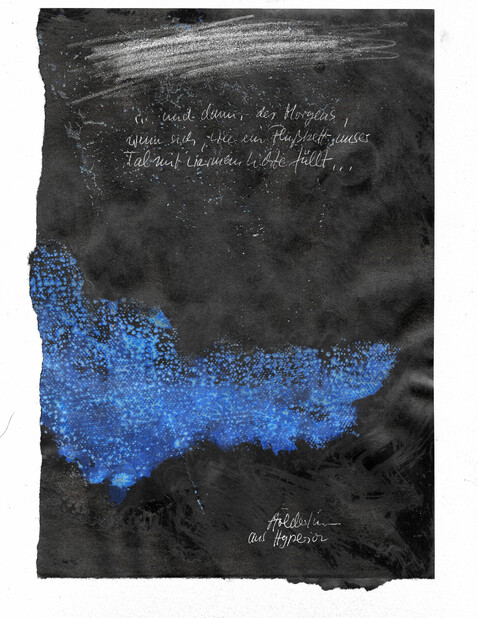 ... und dann, des Morgens,
wenn sich, wie ein Flußbett, unser
Tal mit warmem Lichte füllt...
Hölderlin
aus Hyperion